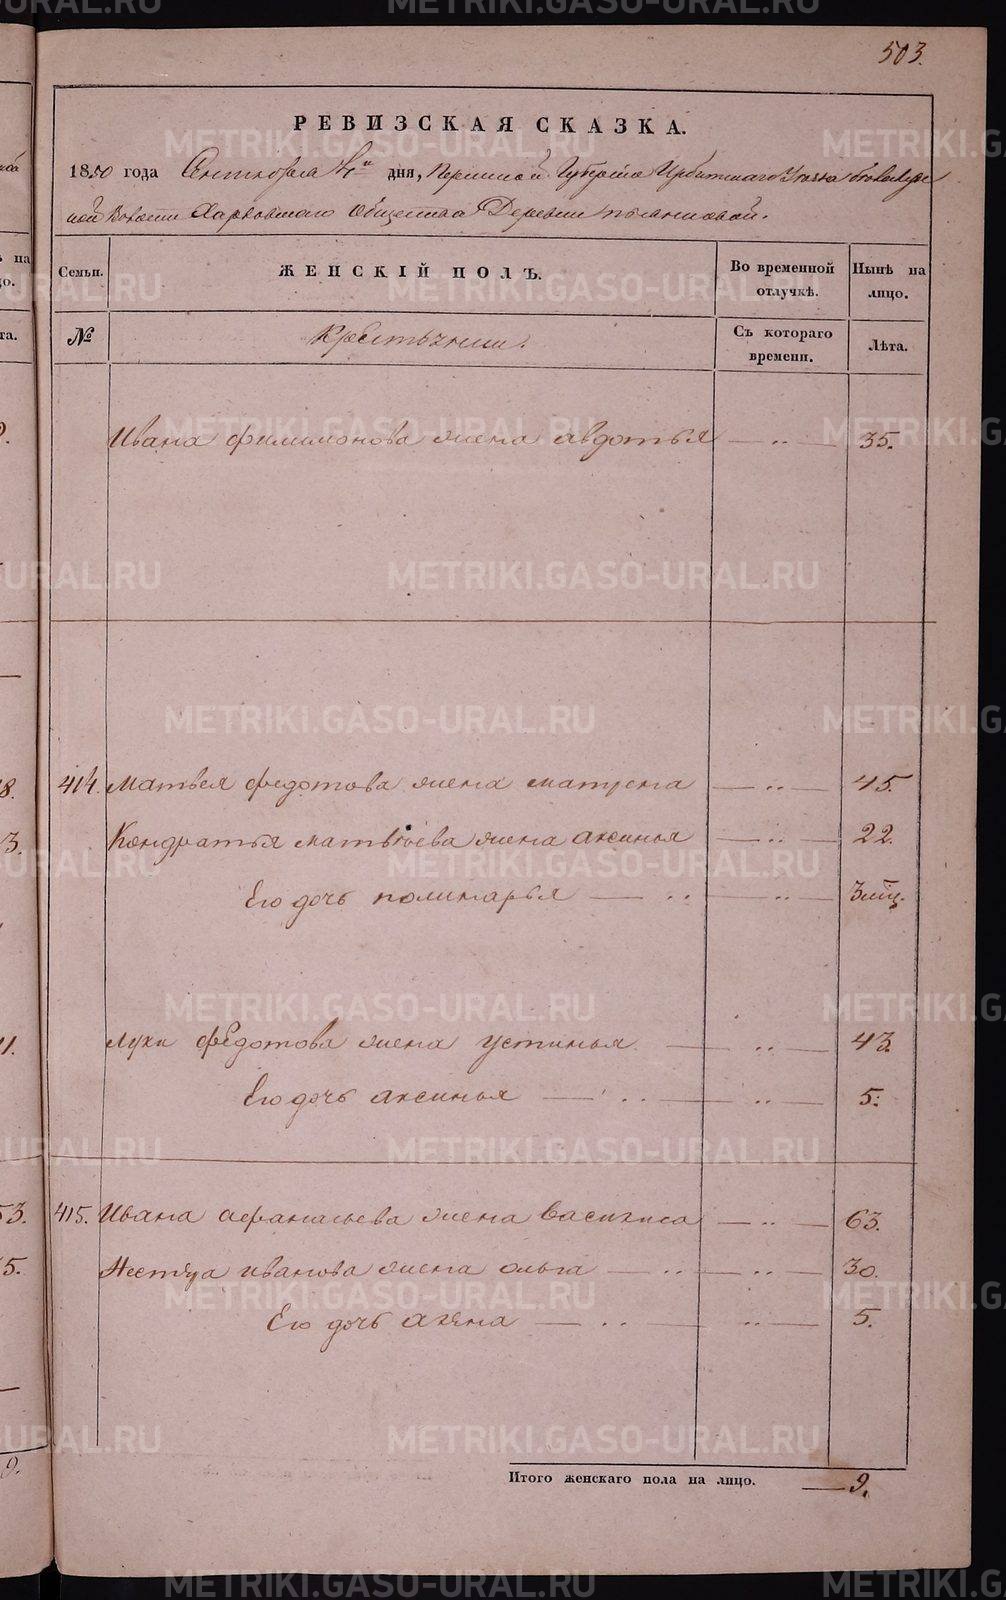 503.
РЕВИЗСКАЯ СКАЗКА.
1850 года Сентября дня, Пермской Губернiи Ирбитскаго Уезда
Волости Харловскаго Общества Деревни
Семьи. ЖЕНСКIЙ ПОЛЪ. Во временной отлучкѣ. Нынѣ на лицо.
№ Крестьянки. Съ котораго времени. Лѣта.
Ивана филимонова жена авдотья — „ — 35.
414. Матвея федотова жена матрена — „ — 45.
Кондратья матвѣева жена аксинья — „ — 22.
Его дочь полинарья — „ — „ — 3 мѣц.
луки федотова жена устинья — „ — 43.
Его дочь аксинья — „ — „ — 5.
415. Ивана афанасьева жена василиса — „ — 63.
Нестера иванова жена ольга — „ — „ — 30.
Его дочь — „ — „ — 5.
Итого женскаго пола на лицо. — 9.
METRIKI.GASO-URAL.RU